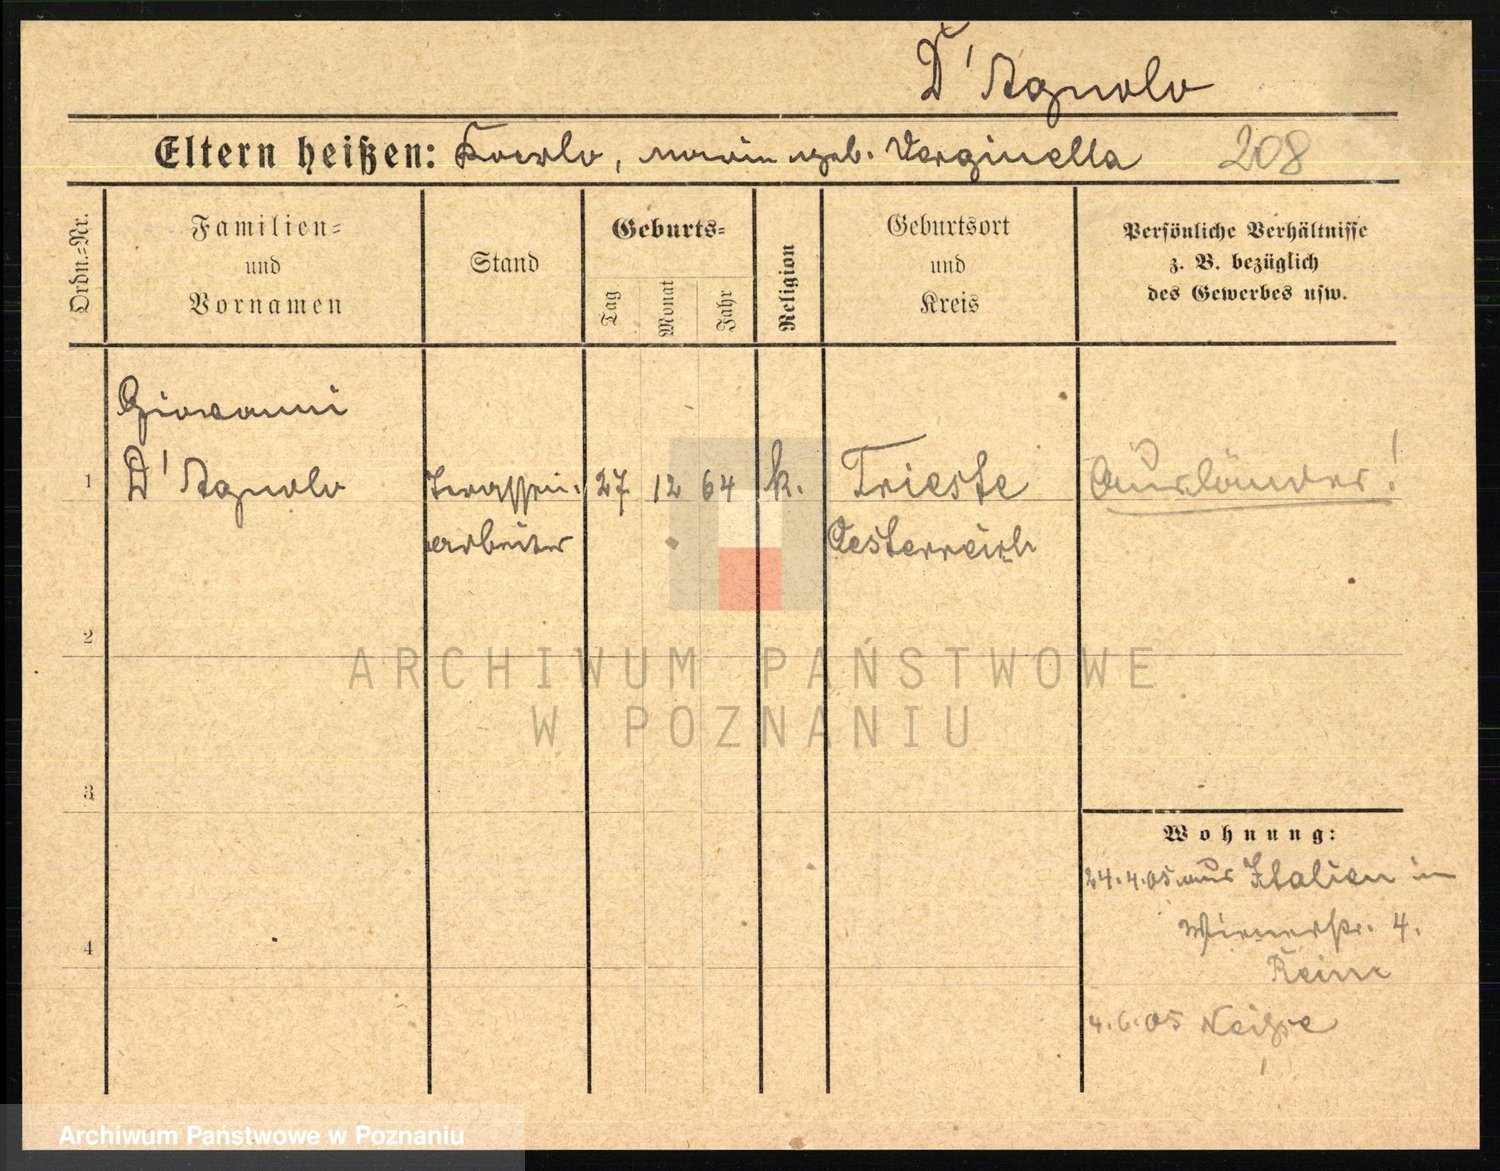 D'Agnolo
Eltern heißen: Karlo, Marie geb. Verginella 208
Ordn.-Nr.
Familien-
und
Vornamen
Stand
Geburts-
Tag
Monat
Jahr
Religion
Geburtsort
und
Kreis
Persönliche Verhältnisse
z. B. bezüglich
des Gewerbes usw.
Giovanni
1 D'Agnolo 27 12 64 k. Trieste Ausländer!
arbeiter Oesterreich
2
ARCHIWUM PAŃSTWOWE
W POZNANIU
3
Wohnung:
24.4.05 aus Italien in
Wienerstr. 4.
4
4.6.05 Neisse
Archiwum Państwowe w Poznaniu